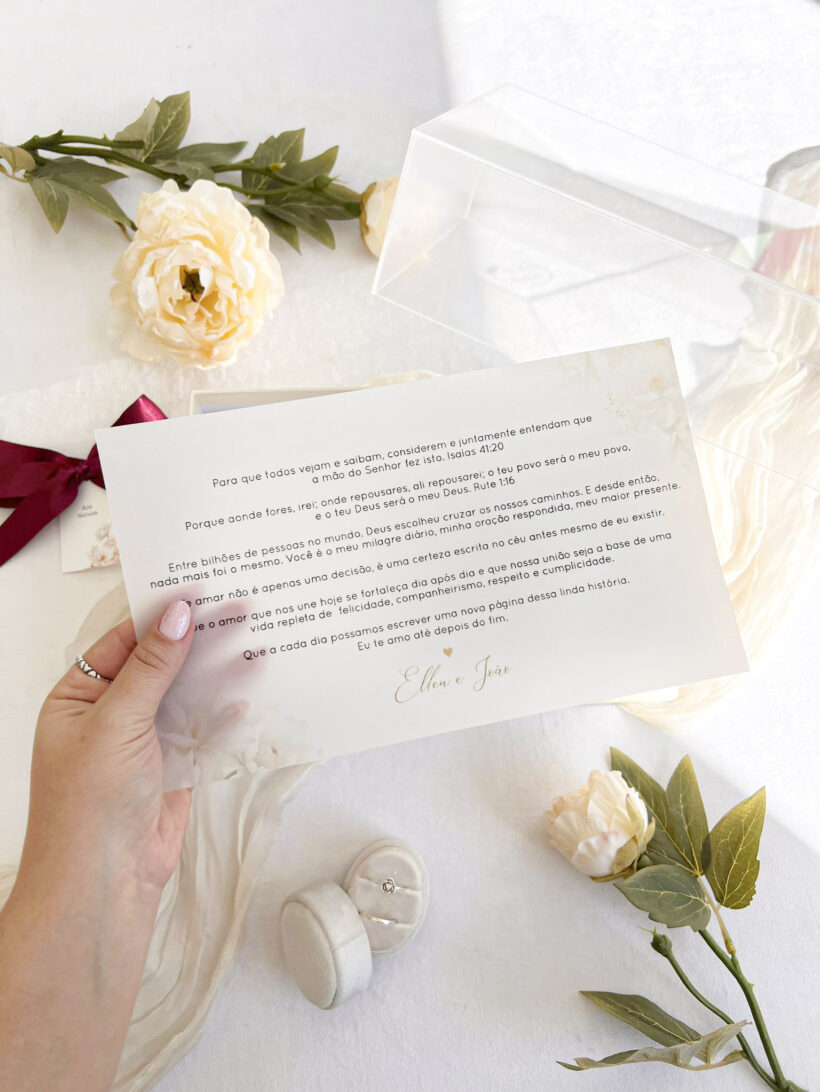 Para que todos vejam e saibam, considerem e juntamente entendam que
a mão do Senhor fez isto. Isaías 41:20
Porque aonde fores, irei; onde repousares, ali repousarei; o teu povo será o meu povo,
e o teu Deus será o meu Deus. Rute 1:16
Entre bilhões de pessoas no mundo, Deus escolheu cruzar os nossos caminhos. E desde então,
nada mais foi o mesmo. Você é o meu milagre diário, minha oração respondida, meu maior presente.
amar não é apenas uma decisão, é uma certeza escrita no céu antes mesmo de eu existir.
o amor que nos une hoje se fortaleça dia após dia e que nossa união seja a base de uma
vida repleta de felicidade, companheirismo, respeito e cumplicidade.
Que a cada dia possamos escrever uma nova página dessa linda história.
Eu te amo até depois do fim.
Ellen e João
Aos
Noivos